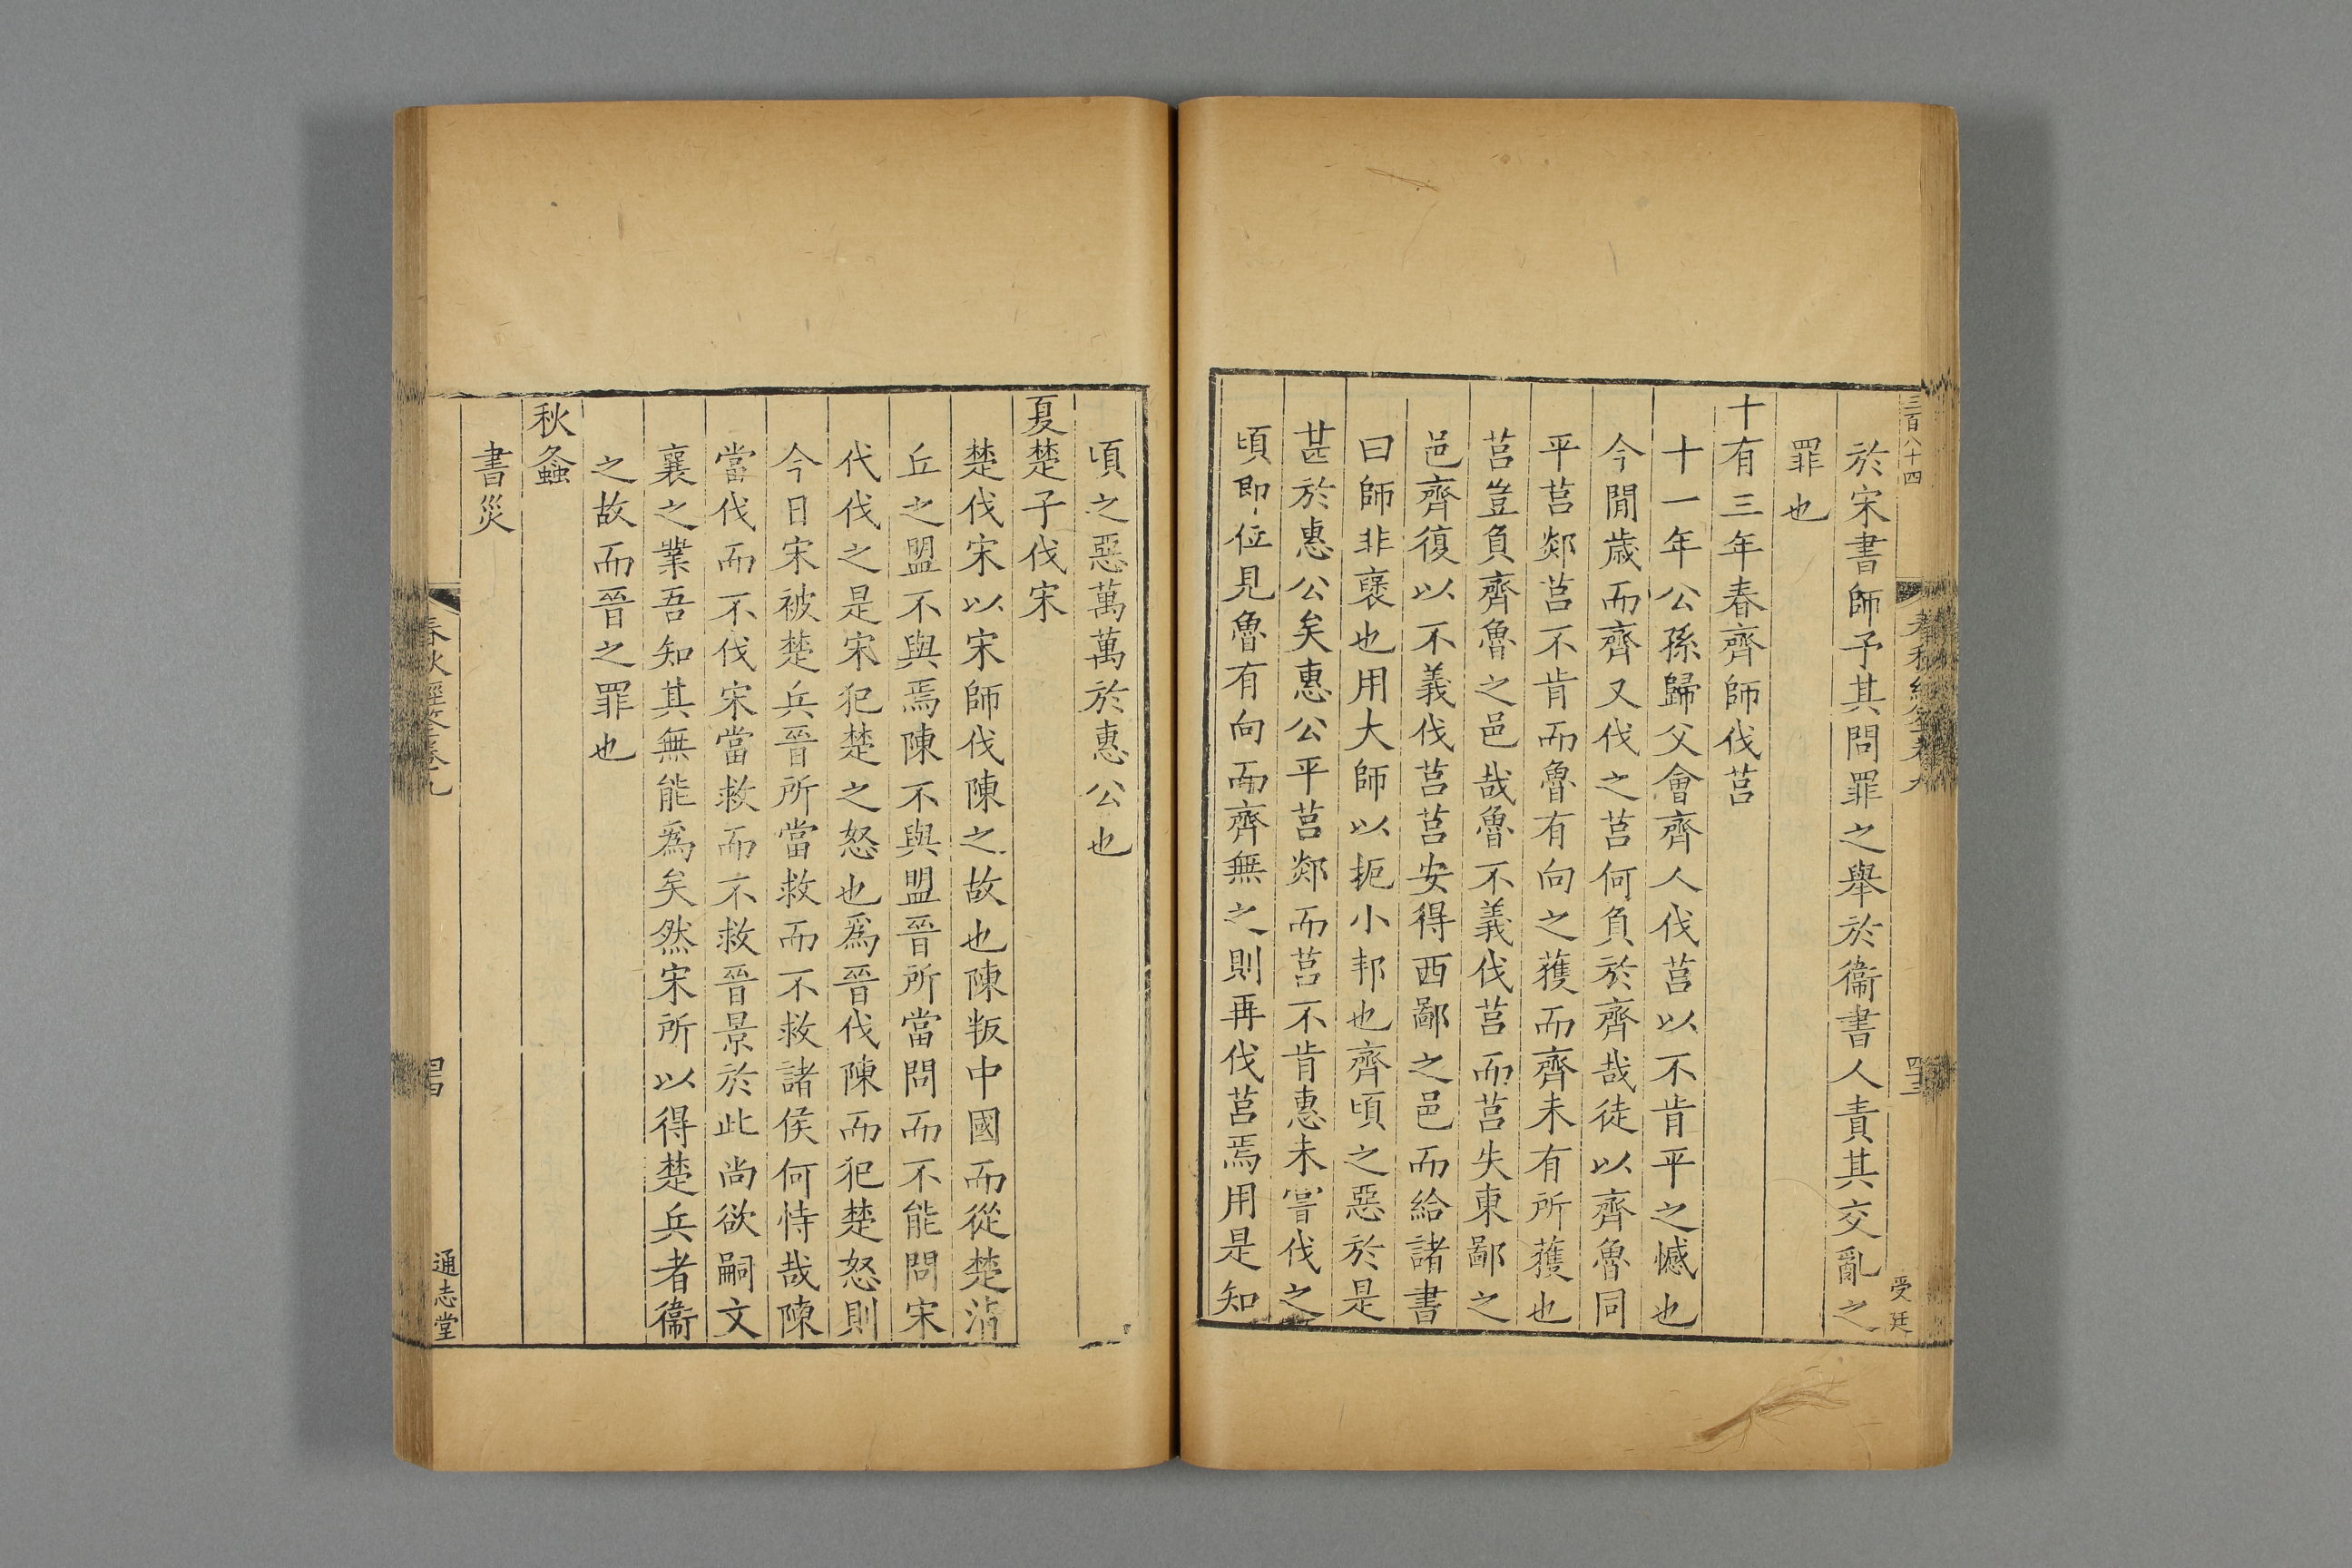 三百八十四
於宋書師予其問罪之舉於衞書人責其交亂之
罪也
十有三年春齊師伐莒
十一年公孫歸父會齊人伐莒以不肯平之憾也
今閒歲而齊又伐之莒何負於齊哉徒以齊魯同
平莒郯莒不肯而魯有向之獲而齊未有所獲也
莒豈負齊魯之邑哉魯不義伐莒而莒失東鄙之
邑齊復以不義伐莒莒安得西鄙之邑而給諸書
曰師非襃也用大師以扼小邦也齊頃之惡於是
甚於惠公矣惠公平莒郯而莒不肯惠未嘗伐之
頃即位見魯有向而齊無之則再伐莒焉用是知
受廷
頃之惡萬萬於惠公也
夏楚子伐宋
楚伐宋以宋師伐陳之故也陳叛中國而從楚清
丘之盟不與焉陳不與盟晉所當問而不能問宋
代伐之是宋犯楚之怒也爲晉伐陳而犯楚怒則
今日宋被楚兵晉所當救而不救諸侯何恃哉陳
當伐而不伐宋當救而不救晉景於此尚欲嗣文
襄之業吾知其無能爲矣然宋所以得楚兵者衞
之故而晉之罪也
秋螽
書災
通志堂